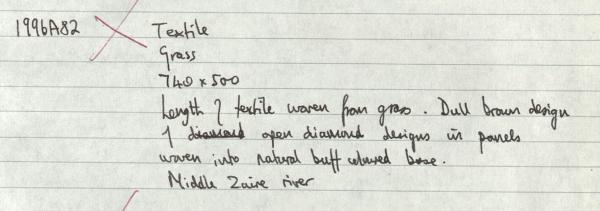 1996A82 Textile
Grass
740 x 500
Length of textile woven from grass. Dull brown design
of diamond open diamond designs in panels
woven into natural buff coloured base.
Middle Zaire river